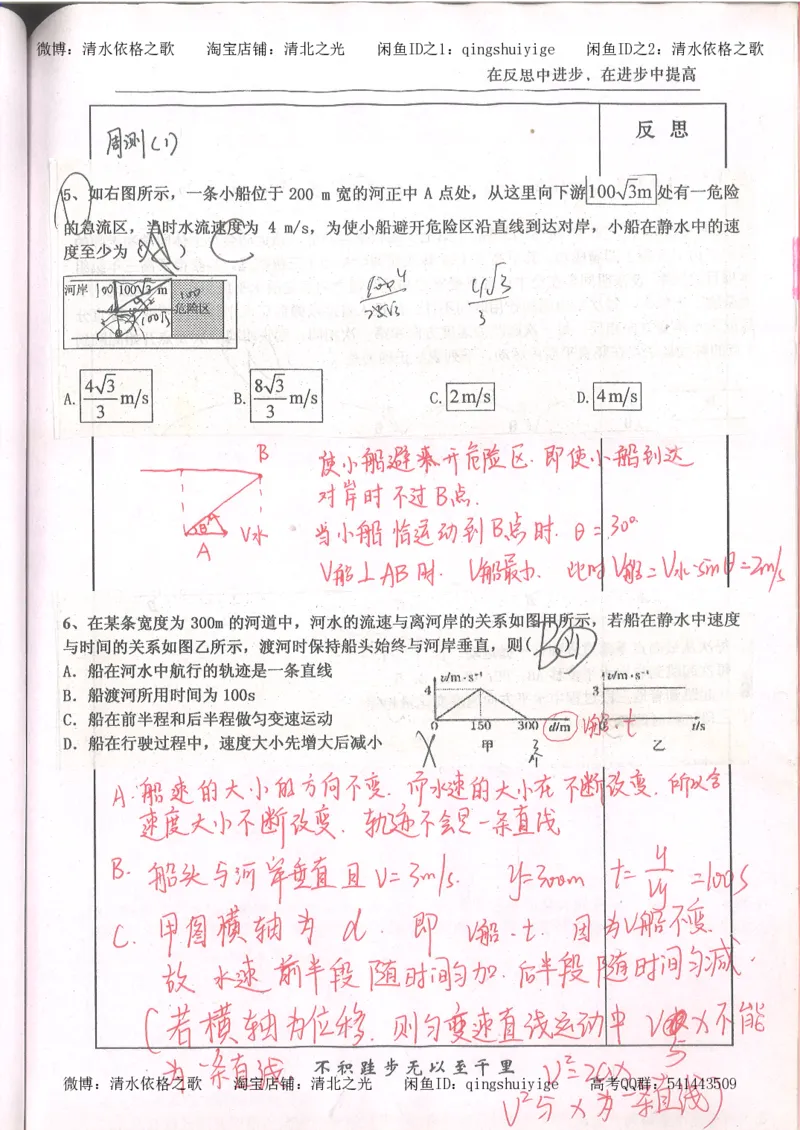 微博：清水依格之歌 淘宝店铺：清北之光 闲鱼ID之1：qingshuiyige 闲鱼ID之2：清水依格之歌
在反思中进步，在进步中提高
周测(1)
反 思
5、如右图所示，一条小船位于 200 m 宽的河正中 A 点处，从这里向下游100√3m 处有一危险
的急流区，当时水流速度为 4 m/s，为使小船避开危险区沿直线到达对岸，小船在静水中的速
度至少为（ ） C
河岸 100 100√3 m 100 危险区
4√3/3
A. 4√3/3 m/s B. 8√3/3 m/s C. 2 m/s D. 4 m/s
B
A V水
使小船避来开危险区. 即使小船到达
对岸时不过B点.
当小船恰运动到B点时. θ=30°
V船⊥AB时. V船最小. 此时V船=V水·sinθ=2m/s
6、在某条宽度为 300m 的河道中，河水的流速与离河岸的关系如图甲所示，若船在静水中速度
与时间的关系如图乙所示，渡河时保持船头始终与河岸垂直，则(
A．船在河水中航行的轨迹是一条直线
B．船渡河所用时间为 100s
C．船在前半程和后半程做匀变速运动
D．船在行驶过程中，速度大小先增大后减小
v/m·s⁻¹ 4 0 150 300 d/m 甲
v/m·s⁻¹ 3 t/s 乙
V船·t
A. 船速的大小的方向不变. 而水速的大小在不断改变. 所以合
速度大小不断改变. 轨迹不会是一条直线
B. 船头与河岸垂直且V=3m/s. y=300m t=y/vy=100s
C. 甲图横轴为d. 即V船·t. 因为V船不变.
故水速前半段随时间匀加. 后半段随时间匀减.
(若横轴为位移. 则匀变速直线运动中V与x不能
为一条直线 V²=2ax
V²与x为一条直线)
不积跬步无以至千里
微博：清水依格之歌 淘宝店铺：清北之光 闲鱼ID：qingshuiyige 高考QQ群：541443509